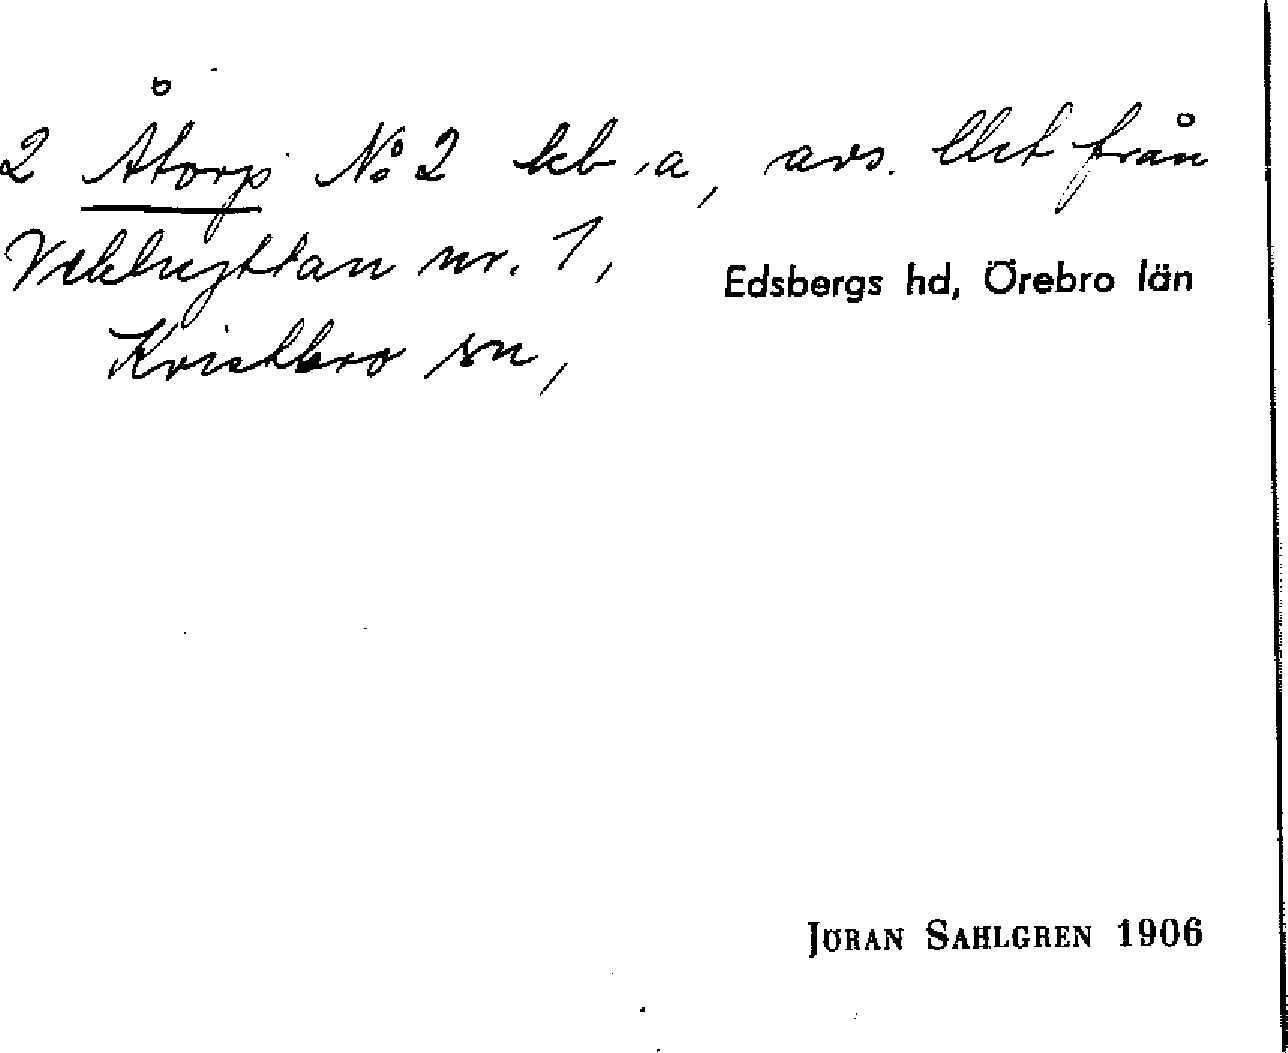 2 Åtorp No 2 kb.a, avs. från
nr. 1,
Edsbergs hd, Örebro län
Kvistbro sn,
JÖRAN SAHLGREN 1906